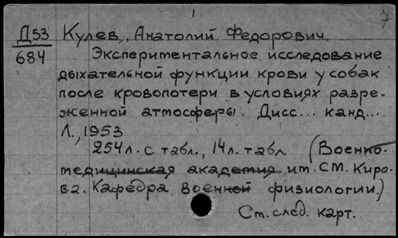 7
Д53 Кулев, Анатолий Федорович.
684 Экспериментальное исследование
дыхательной функции крови у собак
после кровопотери в условиях разре-
женной атмосферы. Дисс... канд...
Л., 1953
254л. с табл., 14л. табл (Военно-
медицинская академия им. С.М. Киро-
ва. Кафедра военной физиологии.)
См. след. карт.